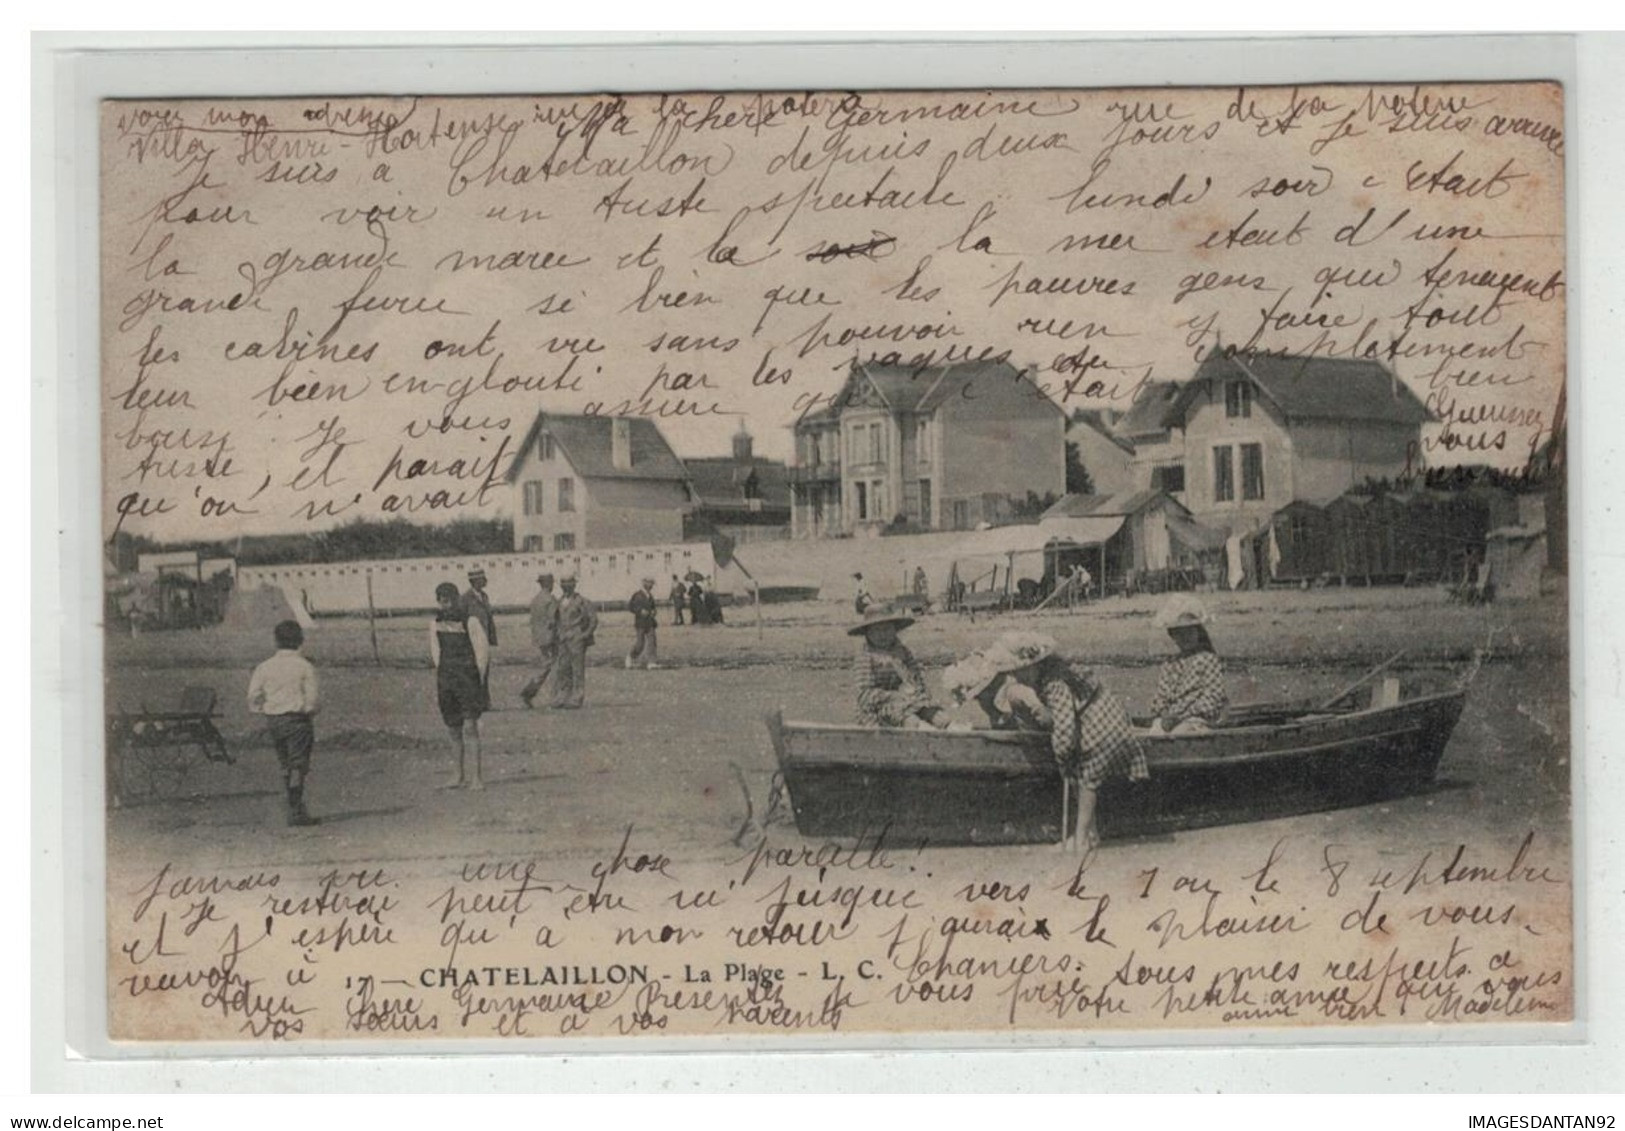 voici mon adresse
Villa Henri-Hortense rue de la poterie
Ma chère Germaine rue de la poterie
Je suis à Chatelaillon depuis deux jours et je suis arrivée
pour voir un triste spectacle lundi soir c'était
la grande maree et la soir la mer etait d'une
grande furie si bien que les pauvres gens qui tenaient
les cabines ont vu sans pouvoir rien y faire tout
leur bien englouti par les vagues complètement
bien
Je vous assure que c'était
triste, et parait
vous
qu'on n'avait
jamais vu une chose pareille!
Je resterai peut être ici jusque vers le 7 ou le 8 septembre
et j'espère qu'à mon retour j'aurai le plaisir de vous
revoir à Chaniers.
17 — CHATELAILLON - La Plage - L. C.
Adieu chère Germaine Présentez je vous prie tous mes respects à
vos sœurs et à vos parents
Votre petite amie qui vous
aime bien Madeleine
Delcampe.net
IMAGESDANTAN92